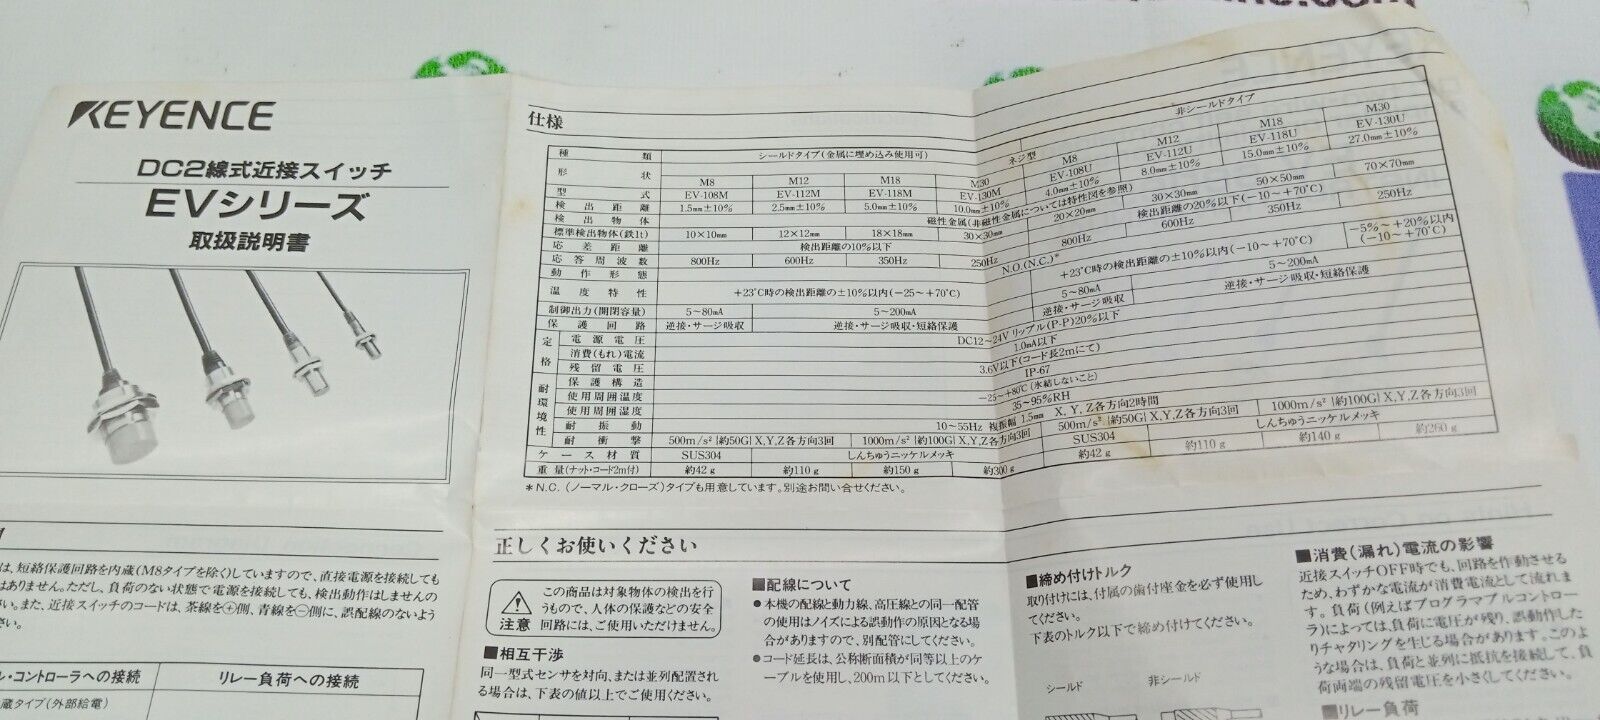 KEYENCE
DC2線式近接スイッチ
EVシリーズ
取扱説明書
仕様
種類 シールドタイプ(金属に埋め込み使用可) 非シールドタイプ
形状 ネジ型
M8 M12 M18 M30 M8 M12 M18 M30
型式 EV-108M EV-112M EV-118M EV-130M EV-108U EV-112U EV-118U EV-130U
検出距離 1.5mm±10% 2.5mm±10% 5.0mm±10% 10.0mm±10% 4.0mm±10% 8.0mm±10% 15.0mm±10% 27.0mm±10%
検出物体 磁性金属(非磁性金属については特性図を参照)
標準検出物体(鉄1t) 10×10mm 12×12mm 18×18mm 30×30mm 20×20mm 30×30mm 50×50mm 70×70mm
応差距離 検出距離の10%以下 検出距離の20%以下(-10~+70℃)
応答周波数 800Hz 600Hz 350Hz 250Hz 800Hz 600Hz 350Hz 250Hz
動作形態 N.O.(N.C.)*
温度特性 +23℃時の検出距離の±10%以内(-25~+70℃) +23℃時の検出距離の±10%以内(-10~+70℃) -5%~+20%以内(-10~+70℃)
制御出力(開閉容量) 5~80mA 5~200mA 5~80mA 5~200mA
保護回路 逆接・サージ吸収 逆接・サージ吸収・短絡保護 逆接・サージ吸収 逆接・サージ吸収・短絡保護
定格 電源電圧 DC12~24V リップル(P-P)20%以下
消費(もれ)電流 1.0mA以下
残留電圧 3.6V以下(コード長2mにて)
耐環境性 保護構造 IP-67
使用周囲温度 -25~+80℃(氷結しないこと)
使用周囲湿度 35~95%RH
耐振動 10~55Hz 複振幅 1.5mm X, Y, Z各方向2時間
耐衝撃 500m/s²{約50G}X,Y,Z各方向3回 1000m/s²{約100G}X,Y,Z各方向3回 500m/s²{約50G}X,Y,Z各方向3回 1000m/s²{約100G}X,Y,Z各方向3回
ケース材質 SUS304 しんちゅうニッケルメッキ SUS304 しんちゅうニッケルメッキ
重量(ナット・コード2m付) 約42g 約110g 約150g 約300g 約42g 約110g 約140g 約260g
*N.C.(ノーマル・クローズ)タイプも用意しています。別途お問い合せください。
は、短絡保護回路を内蔵(M8タイプを除く)していますので、直接電源を接続しても
はありません。ただし、負荷のない状態で電源を接続しても、検出動作はしませんの
い。また、近接スイッチのコードは、茶線を⊕側、青線を⊖側に、誤配線のないよう
さい。
ル・コントローラへの接続 リレー負荷への接続
蔵タイプ(外部給電)
正しくお使いください
注意
この商品は対象物体の検出を行
うもので、人体の保護などの安全
回路には、ご使用いただけません。
■相互干渉
同一型式センサを対向、または並列配置され
る場合は、下表の値以上でご使用ください。
■配線について
●本機の配線と動力線、高圧線との同一配管
の使用はノイズによる誤動作の原因となる場
合がありますので、別配管にしてください。
●コード延長は、公称断面積が同等以上のケ
ーブルを使用し、200m以下としてください。
■締め付けトルク
取り付けには、付属の歯付座金を必ず使用し
てください。
下表のトルク以下で締め付けてください。
シールド 非シールド
■消費(漏れ)電流の影響
近接スイッチOFF時でも、回路を作動させる
ため、わずかな電流が消費電流として流れま
す。負荷(例えばプログラマブルコントロー
ラ)によっては、負荷に電圧が残り、誤動作した
りチャタリングを生じる場合があります。このよ
うな場合は、負荷と並列に抵抗を接続して、負
荷両端の残留電圧を小さくしてください。
■リレー負荷